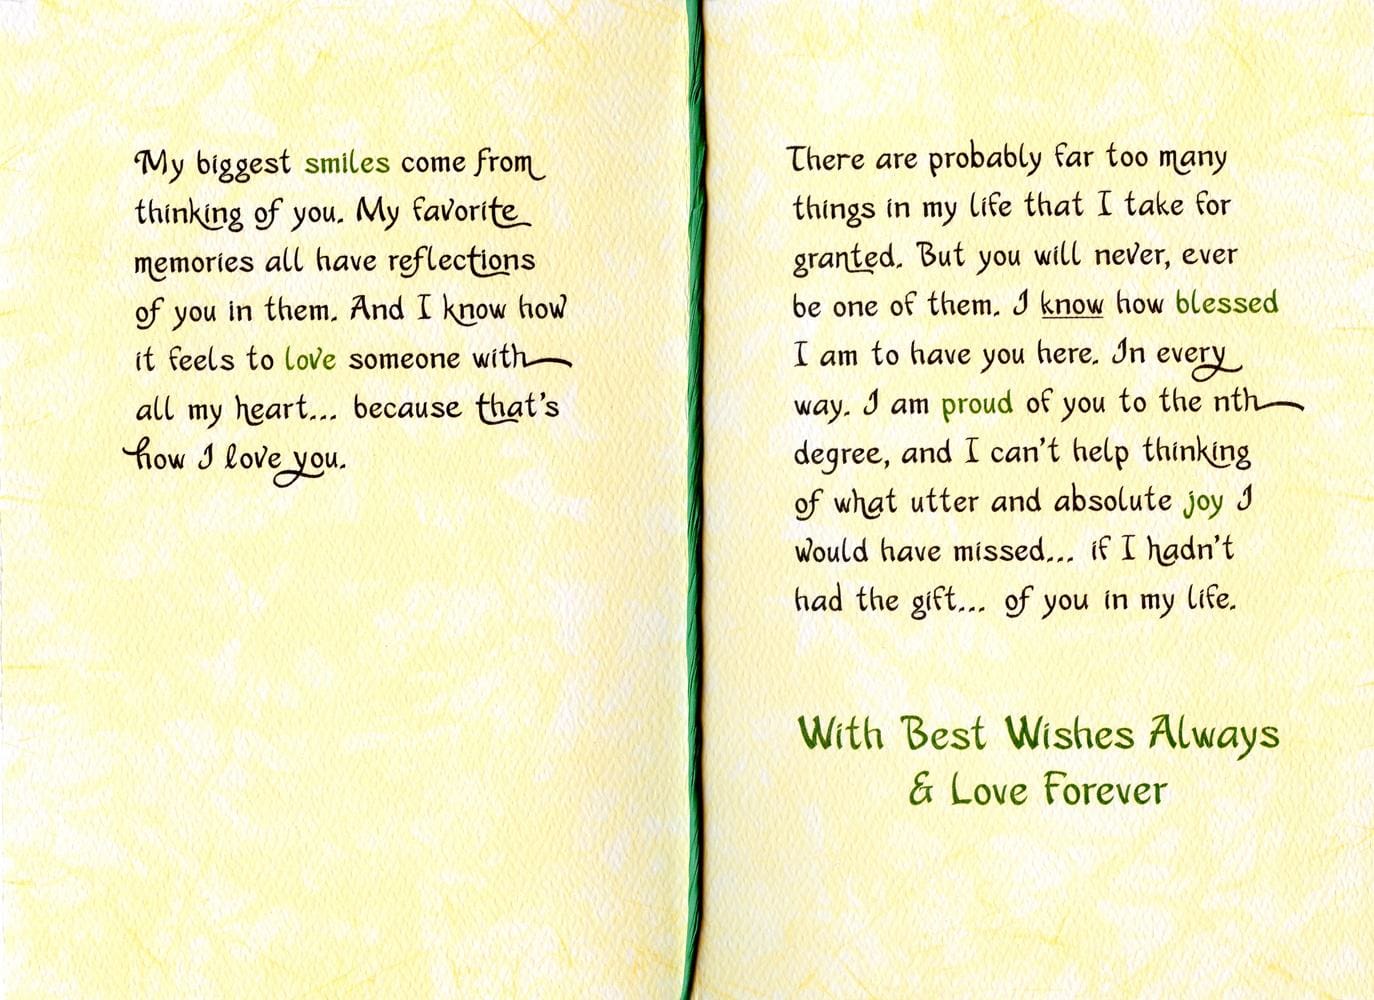 My biggest smiles come from
thinking of you. My favorite
memories all have reflections
of you in them. And I know how
it feels to love someone with
all my heart... because that's
how I love you.
There are probably far too many
things in my life that I take for
granted. But you will never, ever
be one of them. I know how blessed
I am to have you here. In every
way. I am proud of you to the nth
degree, and I can't help thinking
of what utter and absolute joy I
would have missed... if I hadn't
had the gift... of you in my life.
With Best Wishes Always
& Love Forever